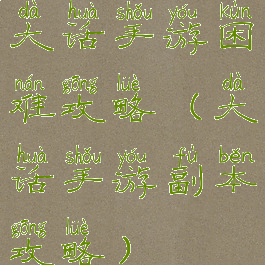 dà huà shǒu yóu kùn
大话手游困
nán gōng lüè dà
难攻略（大
huà shǒu yóu fù běn
话手游副本
gōng lüè
攻略）